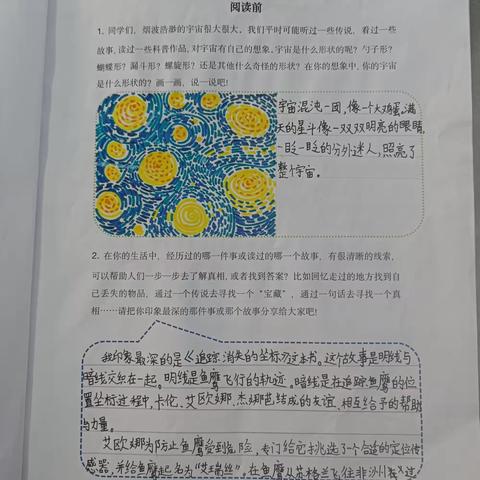 阅读前
1. 同学们，烟波浩渺的宇宙很大很大。我们平时可能听过一些传说，看过一些
故事，读过一些科普作品，对宇宙有自己的想象。宇宙是什么形状的呢？勺子形？
蝴蝶形？漏斗形？螺旋形？还是其他什么奇怪的形状？在你的想象中，你的宇宙
是什么形状的？画一画，说一说吧！
宇宙混沌一团，像一个大鸡蛋。满
天的星斗像一双双明亮的眼睛，
一眨一眨的分外迷人，照亮了
整个宇宙。
2. 在你的生活中，经历过的哪一件事或读过的哪一个故事，有很清晰的线索，
可以帮助人们一步一步去了解真相，或者找到答案？比如回忆走过的地方找到自
己丢失的物品，通过一个传说去寻找一个“宝藏”，通过一句话去寻找一个真
相……请把你印象最深的那件事或那个故事分享给大家吧！
我印象最深的是《追踪消失的坐标》这本书。这个故事是明线与
暗线交织在一起。明线是鱼鹰飞行的轨迹。暗线是在追踪鱼鹰的位
置坐标过程中，卡伦、艾欧娜、杰娜芭结成的友谊、相互给予的帮助
与力量。
艾欧娜为防止鱼鹰受到危险，专门给它挑选了一个合适的定位传
感器，并给鱼鹰起名为“艾瑞丝”，在鱼鹰从苏格兰飞往非洲